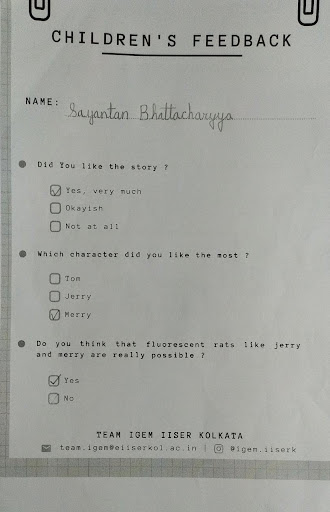 CHILDREN'S FEEDBACK
NAME: Sayantan Bhattacharyya
Did You like the story ?
Yes, very much
Okayish
Not at all
Which character did you like the most ?
Tom
Jerry
Merry
Do you think that fluorescent rats like jerry
and merry are really possible ?
Yes
No
TEAM IGEM IISER KOLKATA
team.igem@eiiserkol.ac.in | @igem.iiserk